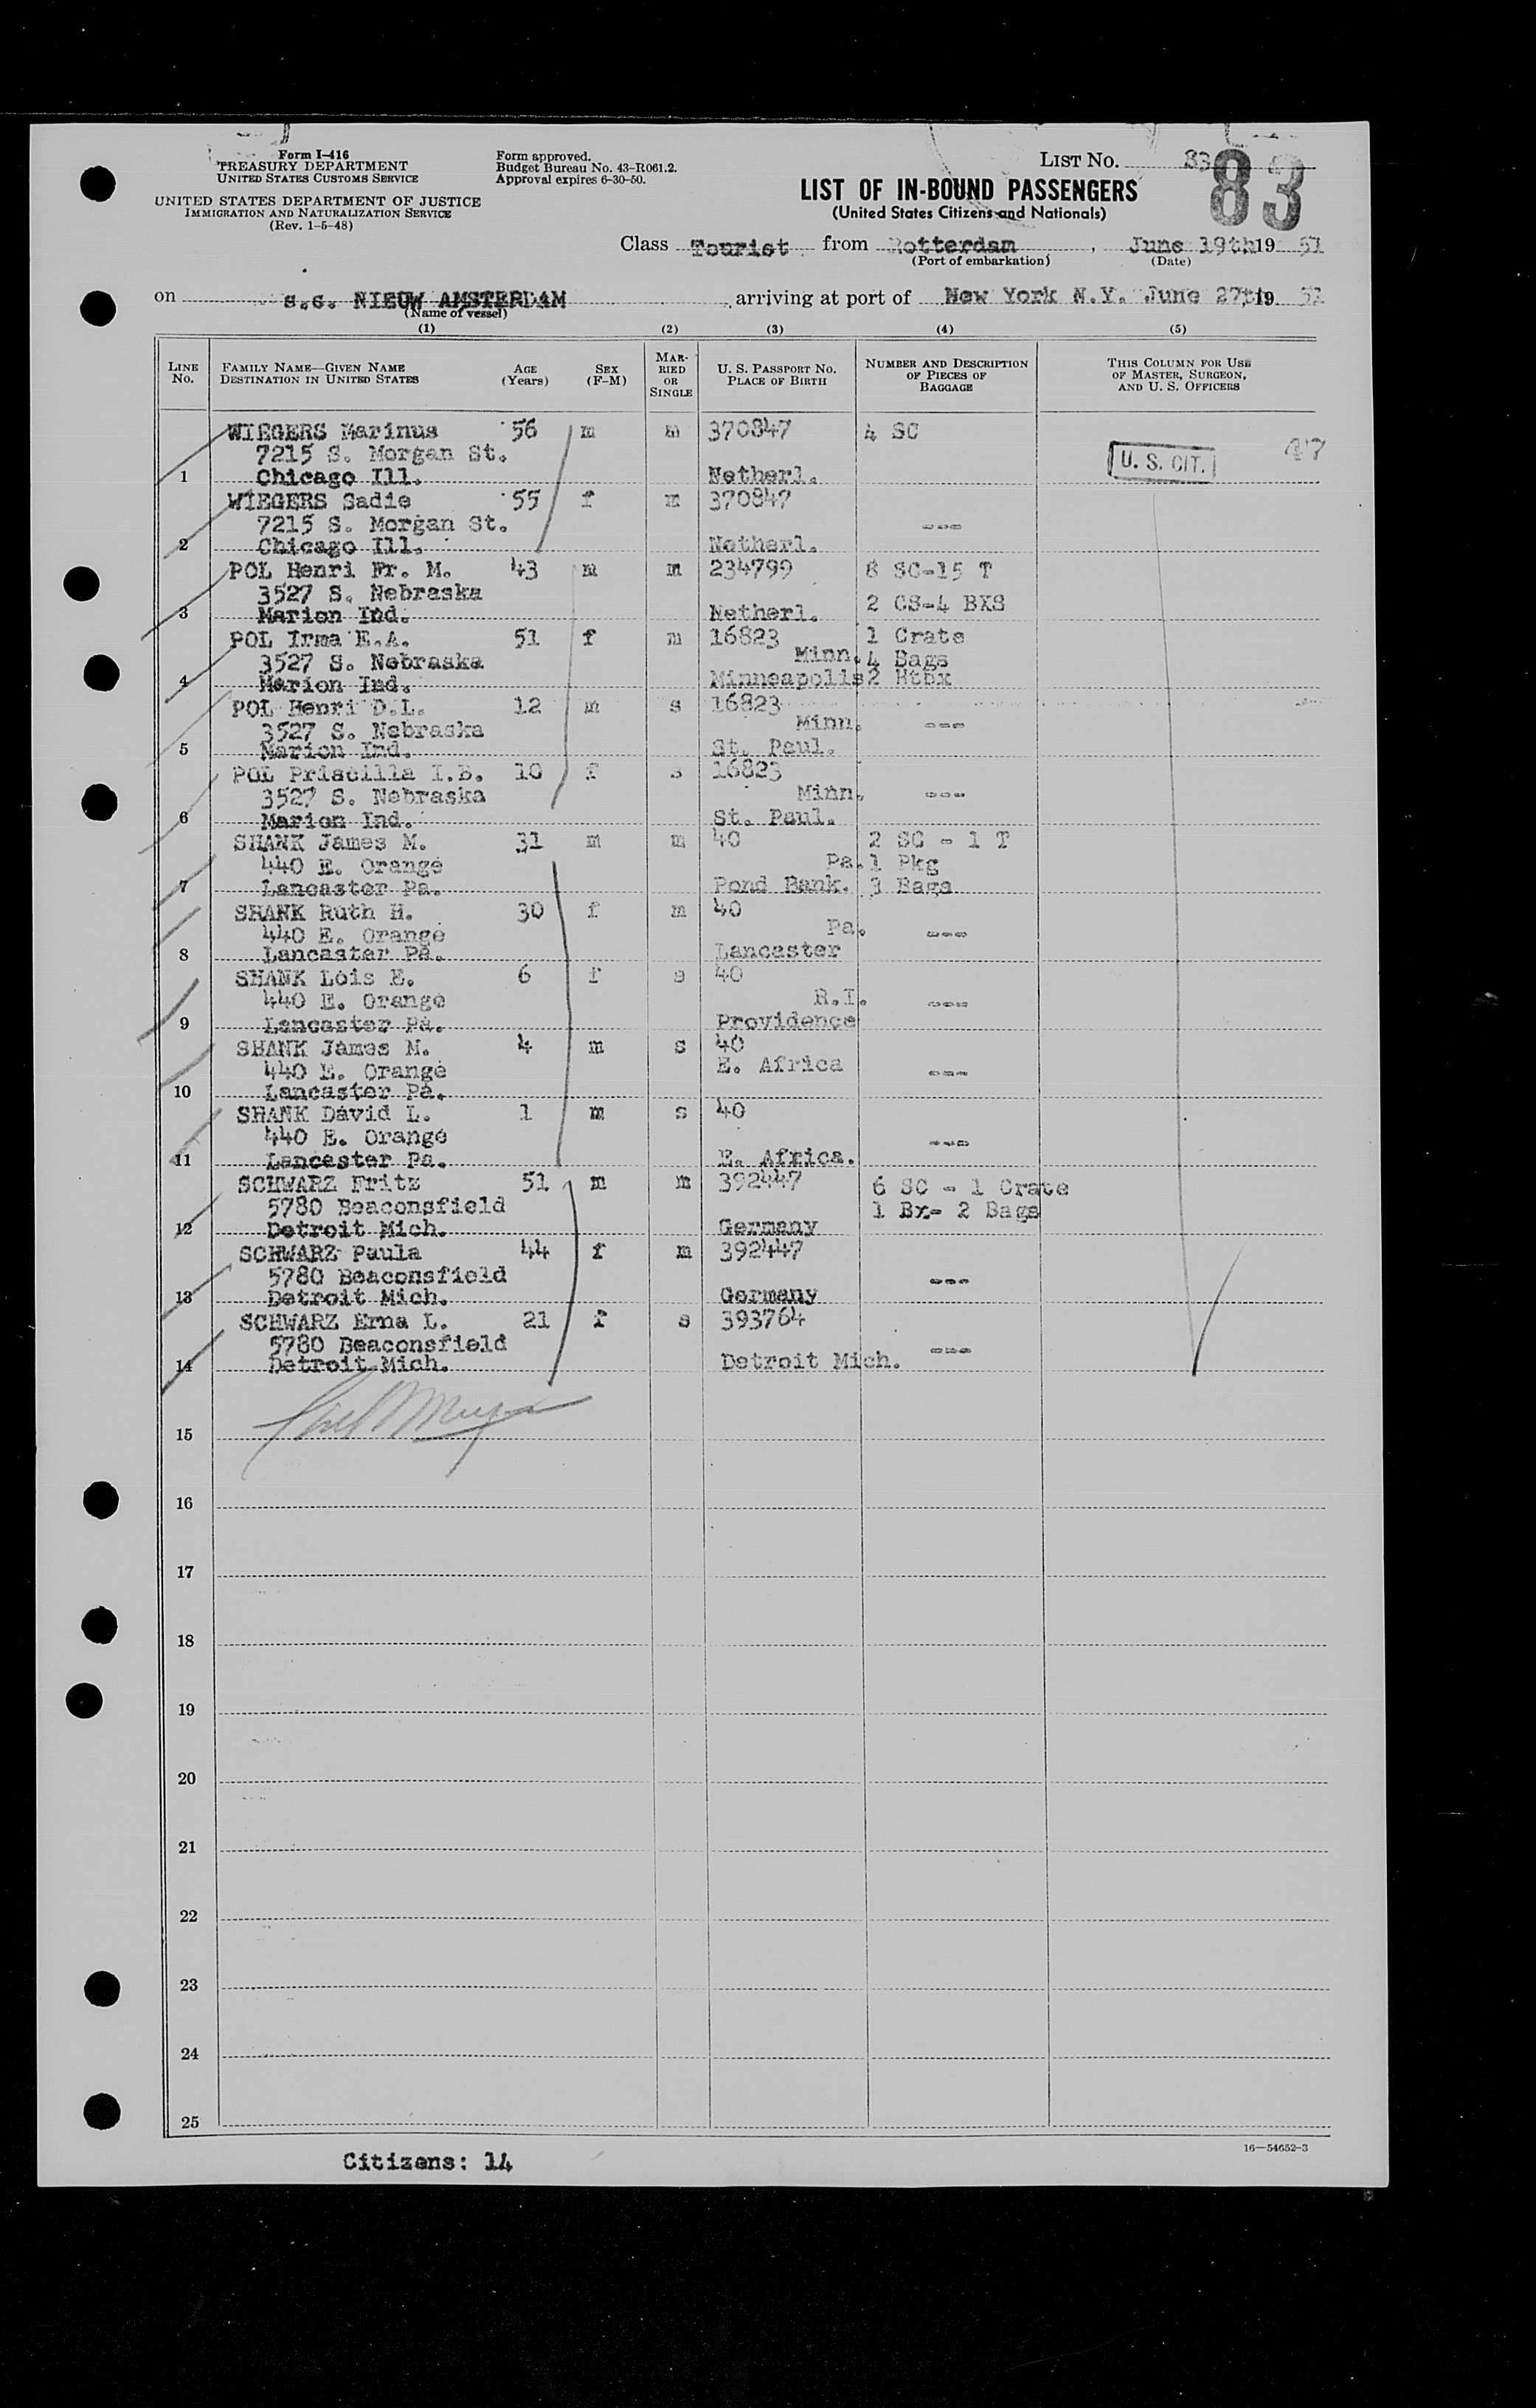 Form I-416
TREASURY DEPARTMENT
UNITED STATES CUSTOMS SERVICE
UNITED STATES DEPARTMENT OF JUSTICE
IMMIGRATION AND NATURALIZATION SERVICE
(Rev. 1-5-48)
Form approved.
Budget Bureau No. 43-R061.2.
Approval expires 6-30-50.
LIST NO. 83
83
LIST OF IN-BOUND PASSENGERS
(United States Citizens and Nationals)
Class Tourist from Rotterdam, June 19th 19 51
(Port of embarkation) (Date)
on s.s. NIEUW AMSTERDAM arriving at port of New York N.Y. June 27th 19 51
(Name of vessel)
(1) (2) (3) (4) (5)
LINE No. FAMILY NAME—GIVEN NAME DESTINATION IN UNITED STATES AGE (Years) SEX (F-M) MARRIED OR SINGLE U. S. PASSPORT No. PLACE OF BIRTH NUMBER AND DESCRIPTION OF PIECES OF BAGGAGE THIS COLUMN FOR USE OF MASTER, SURGEON, AND U. S. OFFICERS
WIEGERS Marinus 56 m m 370847 4 SC
7215 S. Morgan St. U. S. CIT.
1 Chicago Ill. Netherl.
WIEGERS Sadie 55 f m 370847
7215 S. Morgan St. ---
2 Chicago Ill. Netherl.
POL Henri Fr. M. 43 m m 234799 8 SC-15 T
3527 S. Nebraska 2 CS-4 BXS
3 Marion Ind. Netherl.
POL Irma E.A. 51 f m 16823 1 Crate
3527 S. Nebraska Minn. 4 Bags
4 Marion Ind. Minneapolis 2 Htbx
POL Henri D.L. 12 m s 16823
3527 S. Nebraska Minn. ---
5 Marion Ind. St. Paul.
POL Priscilla I.B. 10 f s 16823
3527 S. Nebraska Minn. ---
6 Marion Ind. St. Paul.
SHANK James M. 31 m m 40 2 SC - 1 T
440 E. Orange Pa. 1 Pkg
7 Lancaster Pa. Pond Bank. 3 Bags
SHANK Ruth H. 30 f m 40
440 E. Orange Pa. ---
8 Lancaster Pa. Lancaster
SHANK Lois E. 6 f s 40
440 E. Orange R.I. ---
9 Lancaster Pa. Providence
SHANK James M. 4 m s 40
440 E. Orange E. Africa ---
10 Lancaster Pa.
SHANK David L. 1 m s 40
440 E. Orange ---
11 Lancaster Pa. E. Africa.
SCHWARZ Fritz 51 m m 392447 6 SC - 1 Crate
5780 Beaconsfield 1 Bx- 2 Bags
12 Detroit Mich. Germany
SCHWARZ Paula 44 f m 392447
5780 Beaconsfield ---
13 Detroit Mich. Germany
SCHWARZ Erna L. 21 f s 393764
5780 Beaconsfield ---
14 Detroit Mich. Detroit Mich.
15
16
17
18
19
20
21
22
23
24
25
16—54652-3
Citizens: 14